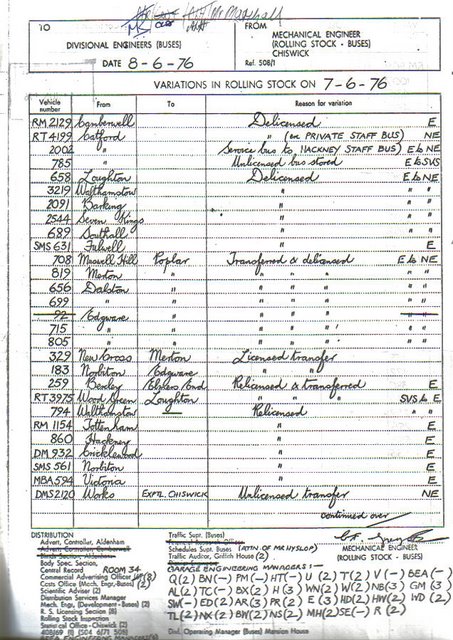 TO
DIVISIONAL ENGINEERS (BUSES)
DATE 8-6-76
FROM
MECHANICAL ENGINEER
(ROLLING STOCK - BUSES)
CHISWICK
Ref. 508/1
VARIATIONS IN ROLLING STOCK ON 7-6-76
Vehicle number From To Reason for variation
RM 2129 Camberwell Delicensed E
RT 4199 Catford " (ex PRIVATE STAFF BUS) NE
2002 " Service bus to HACKNEY STAFF BUS) E to NE
785 " Unlicensed bus stored E to SVS
658 Loughton Delicensed E to NE
3219 Walthamstow " " "
2091 Barking " " "
2544 Seven Kings " " "
689 Southall " " "
SMS 631 Fulwell " E
708 Muswell Hill Poplar Transferred & delicensed E to NE
819 Merton " " " " " "
656 Dalston " " " " " "
699 " " " " " " "
92 Edgware " " " "
715 " " " " " " "
805 " " " " " " "
329 New Cross Merton Licensed transfer
183 Norbiton Edgware " "
259 Bexley Elmers End Relicensed & transferred E
RT 3975 Wood Green Loughton " " " SVS to E
794 Walthamstow — Relicensed " "
RM 1154 Tottenham " E
860 Hackney " E
DM 932 Cricklewood " E
SMS 561 Norbiton " E
MBA 594 Victoria " E
DMS 2120 Works EXPTL. CHISWICK Unlicensed transfer NE
continued over
MECHANICAL ENGINEER
(ROLLING STOCK - BUSES)
DISTRIBUTION
Advert. Controller, Aldenham
Advert. Controller Camberwell
Body Spec. Section,
Central Record ROOM 34
Commercial Advertising Officer (8)
Costs Office (Mech. Engr. Buses) (2)
Scientific Adviser (2)
Distribution Services Manager
Mech. Engr. (Development - Buses) (2)
R. S. Licensing Section (8)
Statistical Office - Chiswick (2)
Traffic Supr. (Buses)
Schedules Supt. Buses (ATTN OF MR HYSLOP)
Traffic Auditor, Griffith House (2)
GARAGE ENGINEERING MANAGERS :-
Q(2) BN(-) PM(-) HT(-) U(2) T(2) V(-) BEA(-)
AL(2) TC(-) BX(2) H(3) WN(2) W(2) NB(3) GM(3)
SW(-) ED(2) AR(3) PR(2) E(3) HD(2) HW(2) WD(2)
TL(2) NX(2) BW(2) NS(2) MH(2) SE(-) R(2)
Dist. Operating Manager (Buses) Mansion House